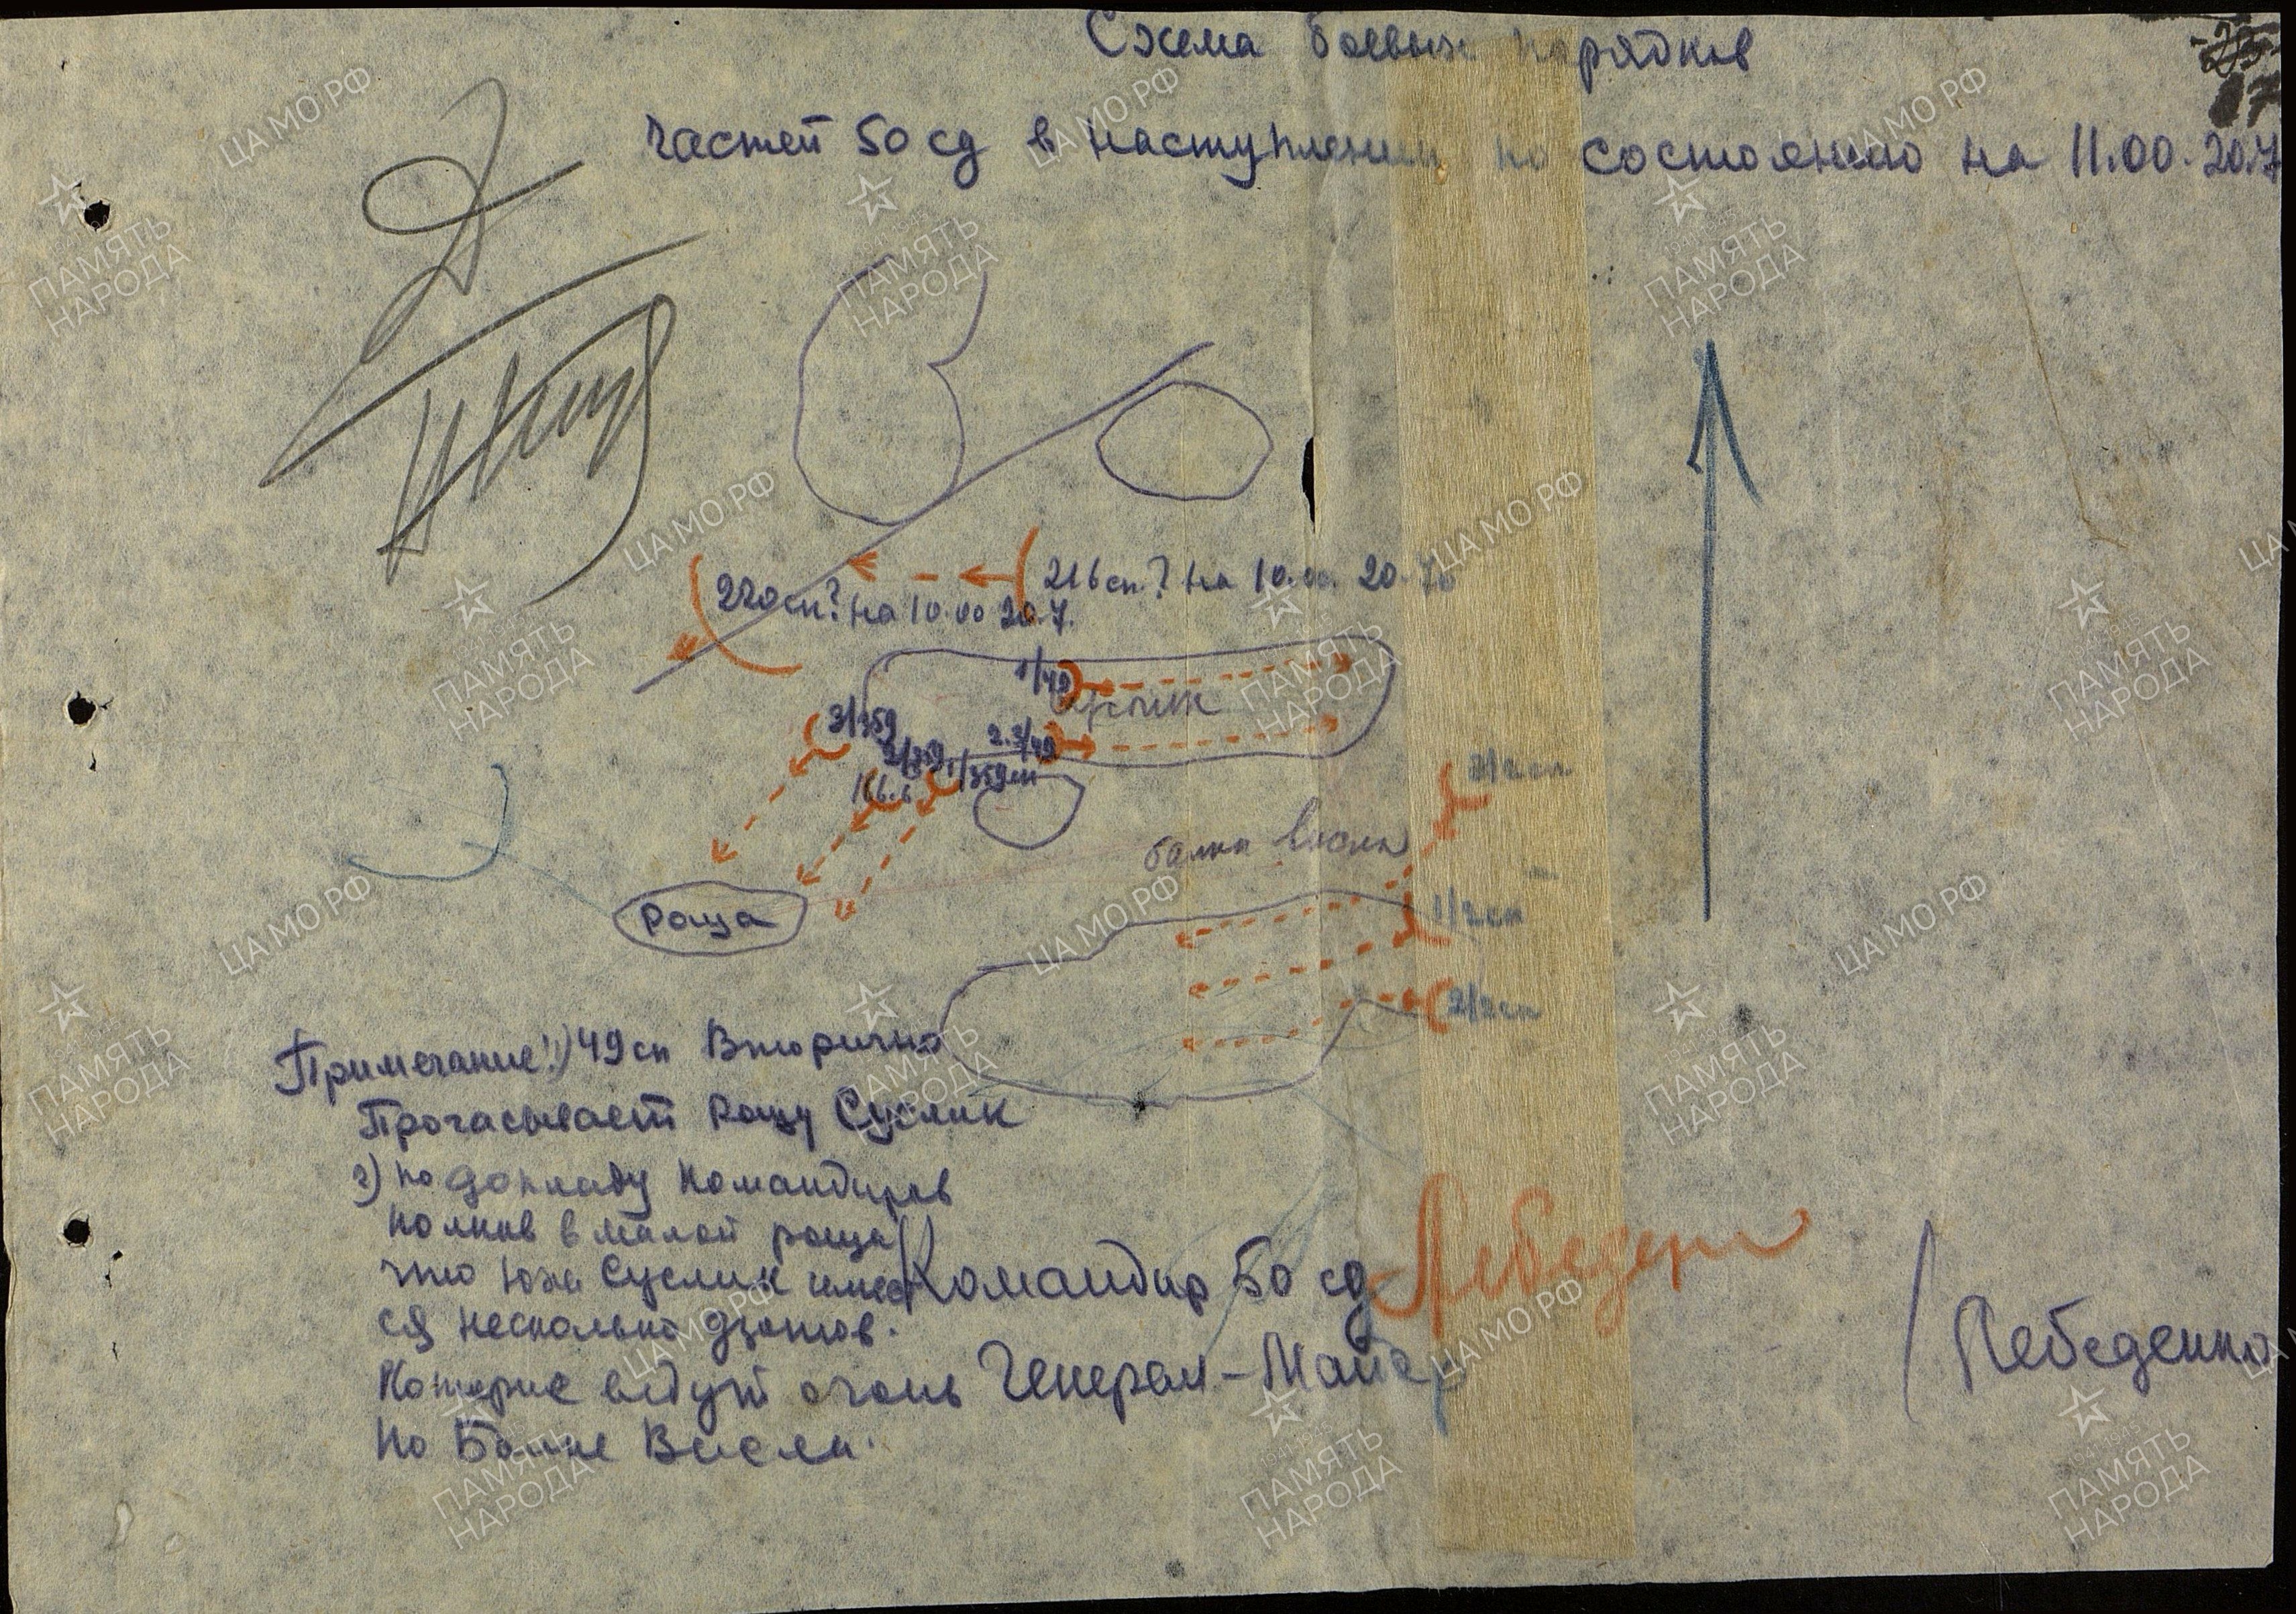 Схема боевых порядков
частей 50 сд в наступлении по состоянию на 11.00. 20.7
220 сп? на 10.00 20.7.
216 сп.? на 10.00. 20.7
1/49
3/359
2.3/49
2/359
1/359 сп
166.6
балка Висла
3/2 сп
1/2 сп
2/2 сп
Роща
Примечание: 1) 49 сп Вторично
Прочасывает рощу Суслик
2) по докладу командиров
полков в малой роще
что южн Суслик имеет
ся несколько дзотов.
Которые ведут огонь
по Балке Висла.
Командир 50 сд
Генерал-Майор
/Лебеденко
ЦАМО РФ
ПАМЯТЬ НАРОДА